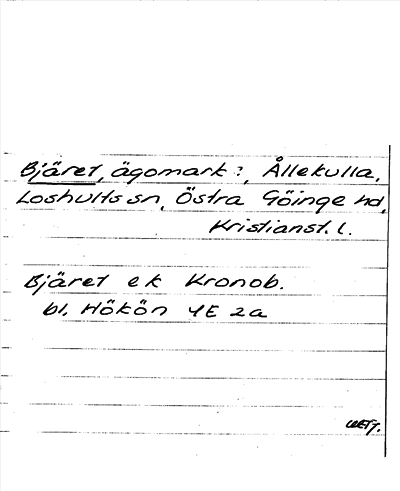 Bjäret, ägomark?, Ållekulla,
Loshults sn, Östra Göinge hd,
Kristianst. l.
Bjäret ek Kronob.
bl. Hökön 4E 2a